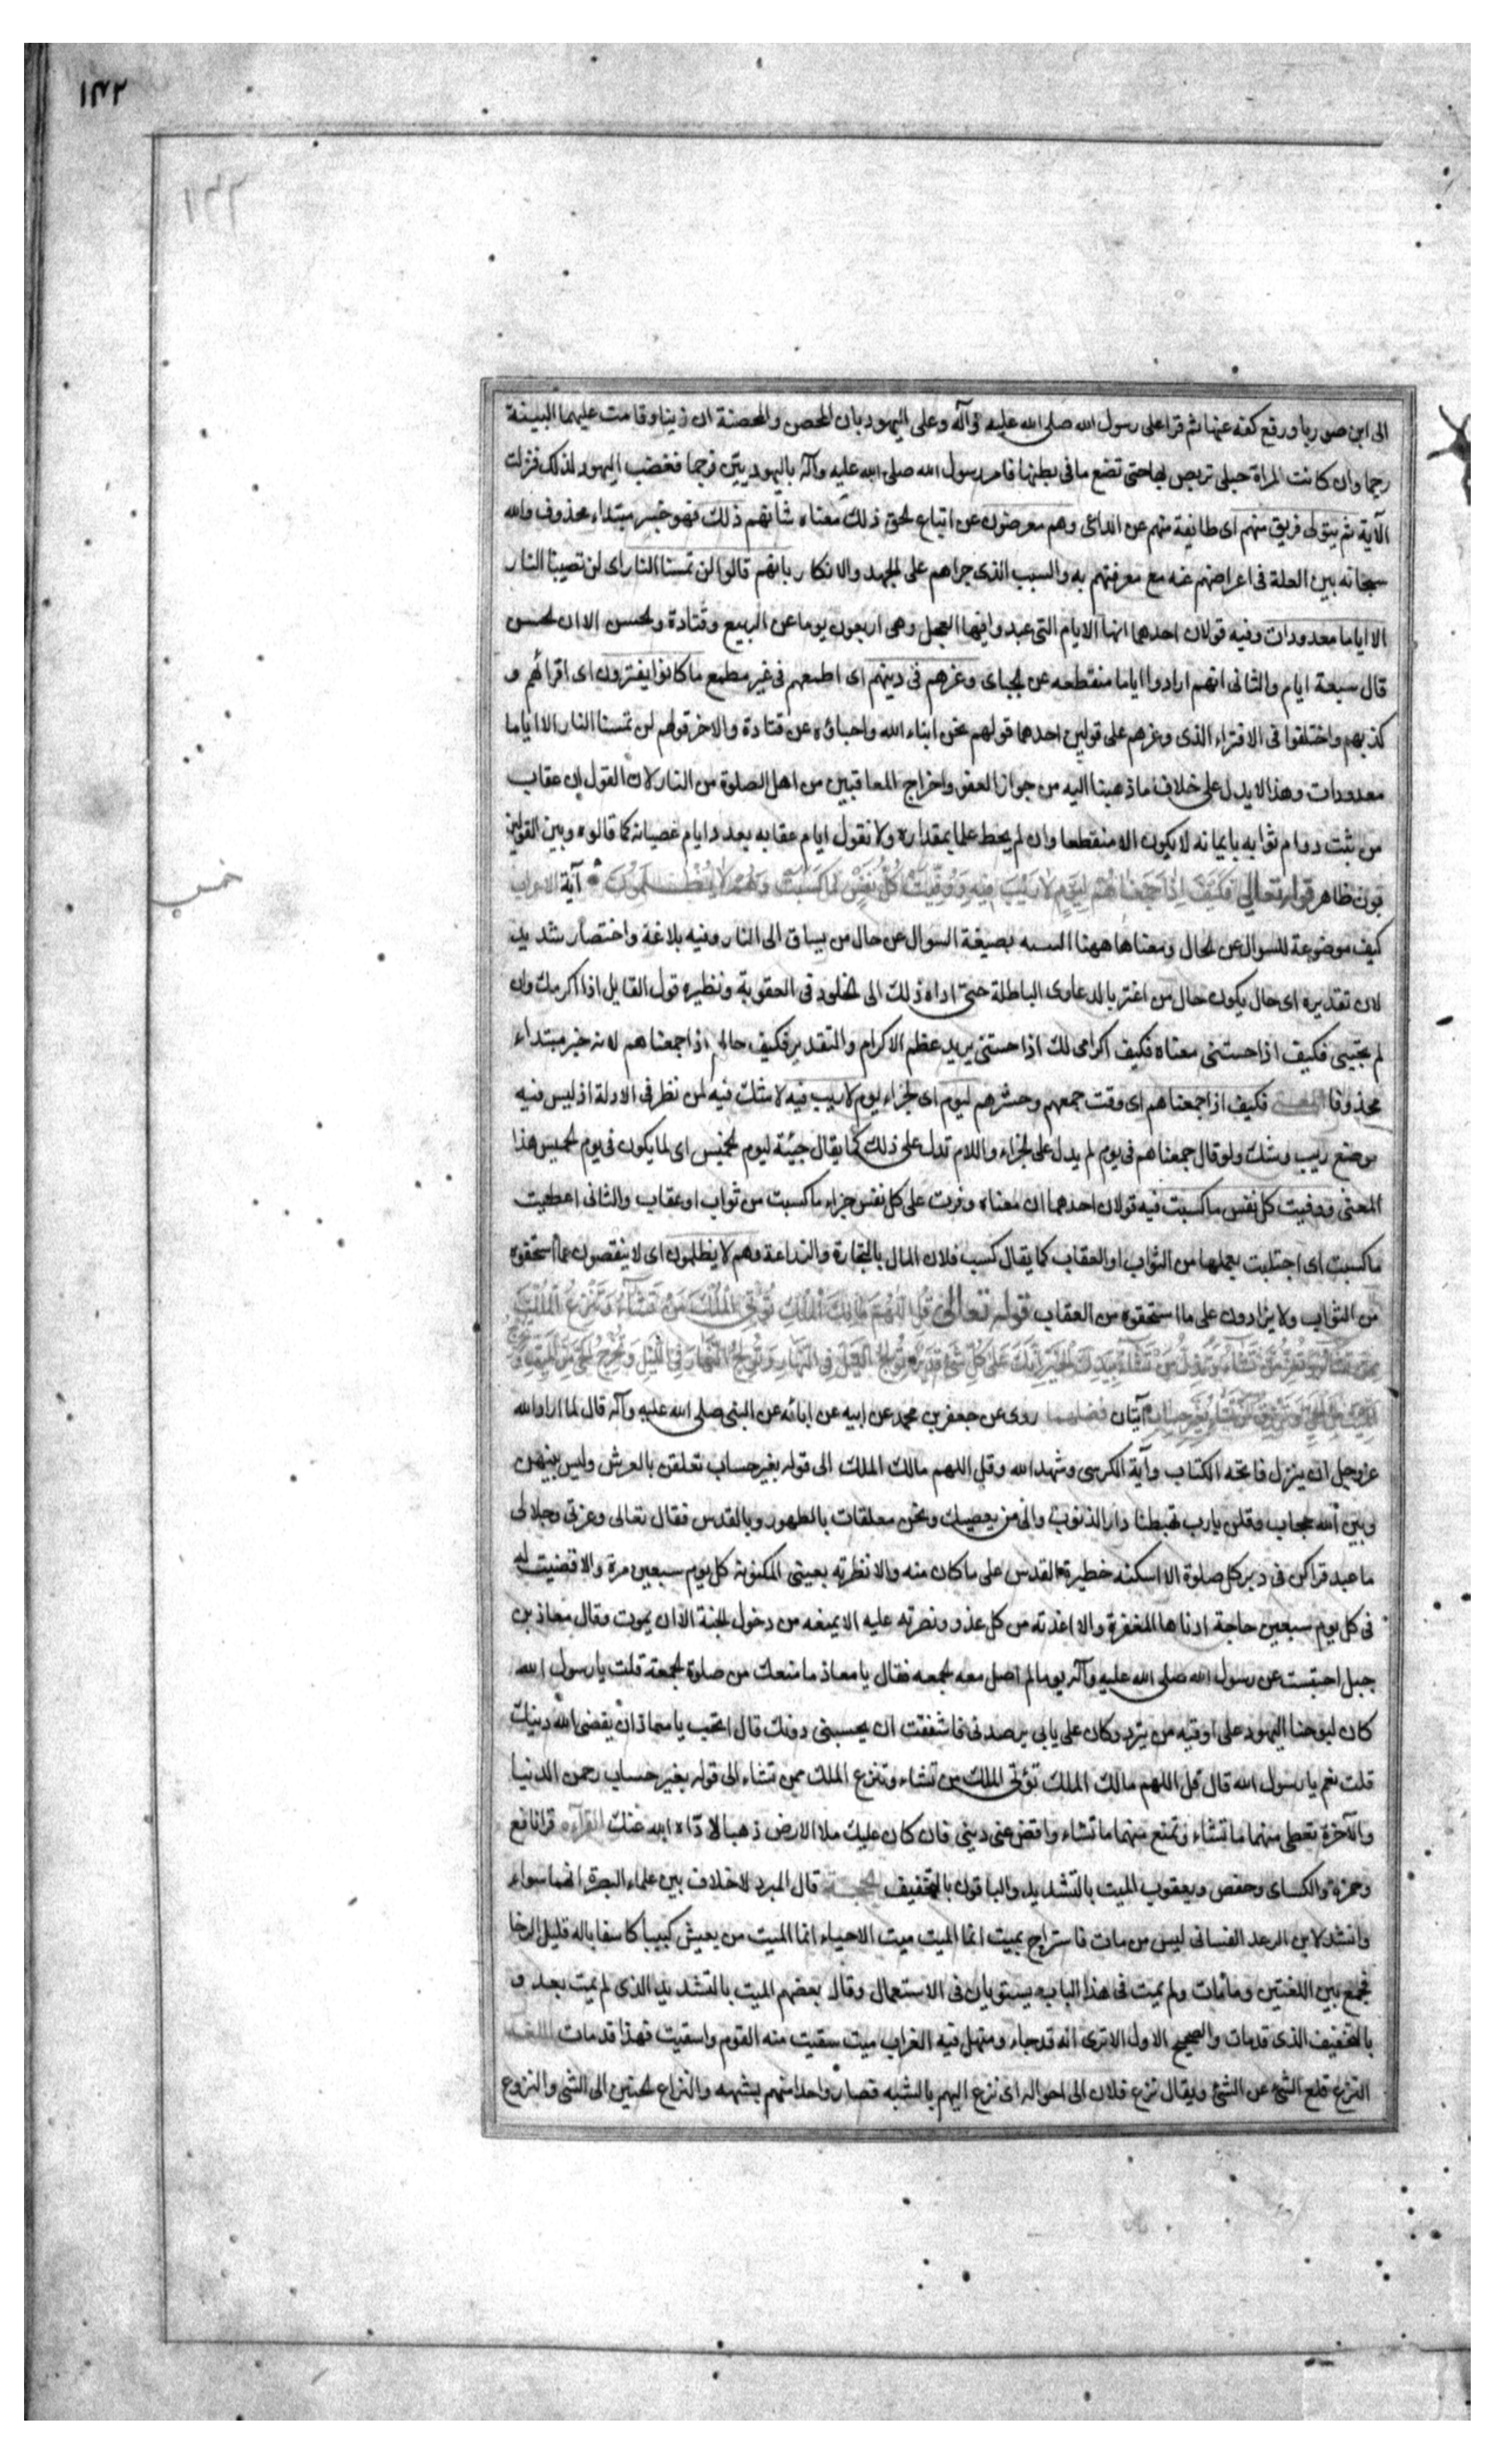 ١٤٢
١٤٢
الى ابن صوريا ورفع كفه عنها ثم قرا على رسول الله صلى الله عليه وآله وعلى اليهود بان المحصن والمحصنة ان زنيا وقامت عليهما البينة
رجما وان كانت المراة حبلى تربص بها حتى تضع ما فى بطنها فامر رسول الله صلى الله عليه وآله باليهوديين فرجما فغضب اليهود لذلك فنزلت
الآية ثم يتولى فريق منهم اى طائفة منهم عن الداعى وهم معرضون عن اتباع الحق ذلك معناه شانهم ذلك فهو خبر مبتداء محذوف والله
سبحانه بين العلة فى اعراضهم عنه مع معرفتهم به والسبب الذى جراهم على الجهد والانكار بانهم قالوا لن تمسنا النار اى لن تصيبنا النار
الا اياما معدودات وفيه قولان احدهما انها الايام التى عبدوا فيها العجل وهى اربعون يوما عن الربيع وقتادة والحسن الا ان الحسن
قال سبعة ايام والثانى انهم ارادوا اياما منقطعه عن الجباى وغرهم فى دينهم اى اطمعهم فى غير مطمع ما كانوا يفترون اى افترائهم و
كذبهم واختلفوا فى الافتراء الذى وغرهم على قولين احدهما قولهم نحن ابناء الله واحباؤه عن قتادة والاخر قولهم لن تمسنا النار الا اياما
معدودات وهذا لا يدل على خلاف ما ذهبنا اليه من جواز العفو واخراج المعاقبين من اهل الصلوة من النار لان القول ان عقاب
من ثبت دوام ثوابه بايمانه لا يكون الا منقطعا وان لم يحط علما بمقداره ولا نقول ايام عقابه بعدد ايام عصيانه كما قالوه وبين القولين
بون ظاهر قوله تعالى فَكَيْفَ اِذَا جَمَعْنَاهُمْ لِيَوْمٍ لَا رَيْبَ فِيهِ وَوُفِّيَتْ كُلُّ نَفْسٍ مَا كَسَبَتْ وَهُمْ لَا يُظْلَمُونَ آية الاعراب
كيف موضوعة للسوال عن الحال ومعناها ههنا بصيغة السوال عن حال من يساق الى النار وفيه بلاغة واختصار شديد
لان تقديره اى حال يكون حال من اغتر بالدعاوى الباطلة حتى اداه ذلك الى الخلود فى العقوبة ونظيره قول القايل اذا اكرمك وان
لم يجئنى فكيف اذا جئتنى معناه فكيف اكرامى لك اذا جئتنى يريد عظم الاكرام والتقدير فكيف حالهم اذا جمعناهم لانه خبر مبتداء
محذوفا المعنى فكيف اذا جمعناهم اى وقت جمعهم وحشرهم ليوم اى لجزاء يوم لا ريب فيه لا شك فيه لمن نظر فى الادلة اذ ليس فيه
موضع ريب وشك ولو قال جمعناهم فى يوم لم يدل على الجزاء واللام تدل على ذلك كما يقال جيئة ليوم الخميس اى لما يكون فى يوم الخميس هذا
المعنى ووفيت كل نفس ما كسبت فيه قولان احدهما ان معناه وفرت على كل نفس جزاء ما كسبت من ثواب او عقاب والثانى اعطيت
ما كسبت اى اجتلبت بعملها من الثواب او العقاب كما يقال كسب فلان المال بالتجارة والزراعة وهم لا يظلمون اى لا ينقصون عما استحقوه
من الثواب ولا يزادون على ما استحقوه من العقاب قوله تعالى قُلِ اللّٰهُمَّ مَالِكَ الْمُلْكِ تُؤْتِى الْمُلْكَ مَنْ تَشَاءُ وَتَنْزِعُ الْمُلْكَ
مِمَّنْ تَشَاءُ وَتُعِزُّ مَنْ تَشَاءُ وَتُذِلُّ مَنْ تَشَاءُ بِيَدِكَ الْخَيْرُ اِنَّكَ عَلَى كُلِّ شَىْءٍ قَدِيرٌ تُولِجُ اللَّيْلَ فِى النَّهَارِ وَتُولِجُ النَّهَارَ فِى اللَّيْلِ وَتُخْرِجُ الْحَىَّ مِنَ الْمَيِّتِ وَتُخْرِجُ
الْمَيِّتَ مِنَ الْحَىِّ وَتَرْزُقُ مَنْ تَشَاءُ بِغَيْرِ حِسَابٍ آيتان فضلهما روى عن جعفر بن محمد عن ابيه عن ابائه عن النبى صلى الله عليه وآله قال لما اراد الله
عز وجل ان ينزل فاتحه الكتاب وآية الكرسى وشهد الله وقل اللهم مالك الملك الى قوله بغير حساب تعلقن بالعرش وليس بينهن
وبين الله حجاب وقلن يا رب تهبطنا دار الذنوب والى من يعصيك ونحن معلقات بالطهور وبالقدس فقال تعالى وعزتى وجلالى
ما عبد قراكن فى دبر كل صلوة الا اسكنه حظيرة القدس على ما كان منه والا نظرته بعينى المكنونة كل يوم سبعين مرة والا قضيت له
فى كل يوم سبعين حاجة ادناها المغفرة والا اعذته من كل عدو ونصرته عليه الا يمنعه من دخول الجنة الا ان يموت وقال معاذ بن
جبل احتبست عن رسول الله صلى الله عليه وآله يوما لم اصل معه الجمعه فقال يا معاذ ما منعك من صلوة الجمعة قلت يا رسول الله
كان ليوحنا اليهود على اوقيه من تبر وكان على بابى يرصدنى فاشفقت ان يحبسنى دونك قال اتحب يا معاذ ان يقضى الله دينك
قلت نعم يا رسول الله قال قل اللهم مالك الملك تؤتى الملك من تشاء وتنزع الملك ممن تشاء الى قوله بغير حساب رحمن الدنيا
والآخرة تعطى منهما ما تشاء وتمنع منهما ما تشاء واقض عنى دينى فان كان عليك ملا الارض ذهبا لاداه الله عنك القراءه قرا نافع
وحمزة والكساى وحفص ويعقوب الميت بالتشديد والباقون بالتخفيف الحجة قال المبرد لا خلاف بين علماء البصرة انهما سواء
وانشد لابن الرعد الغسانى ليس من مات فاستراح بميت انما الميت ميت الاحياء انما الميت من يعيش كئيبا كاسفا باله قليل الرخا
فجمع بين اللغتين وما مات ولم يميت فى هذا الباب يستويان فى الاستعمال وقال بعضهم الميت بالتشديد الذى لم يمت بعد و
بالتخفيف الذى قد مات والصحيح الاول الا ترى انه قد جاء ومنهل فيه الغراب ميت سقيت منه القوم واسقيت فهذا قد مات اللغه
النزع قلع الشئ عن الشئ ويقال نزع فلان الى اخواله اى نزع اليهم بالشبه فصار واحدا منهم بشبهه والنزاع الحنين الى الشئ والنزوع